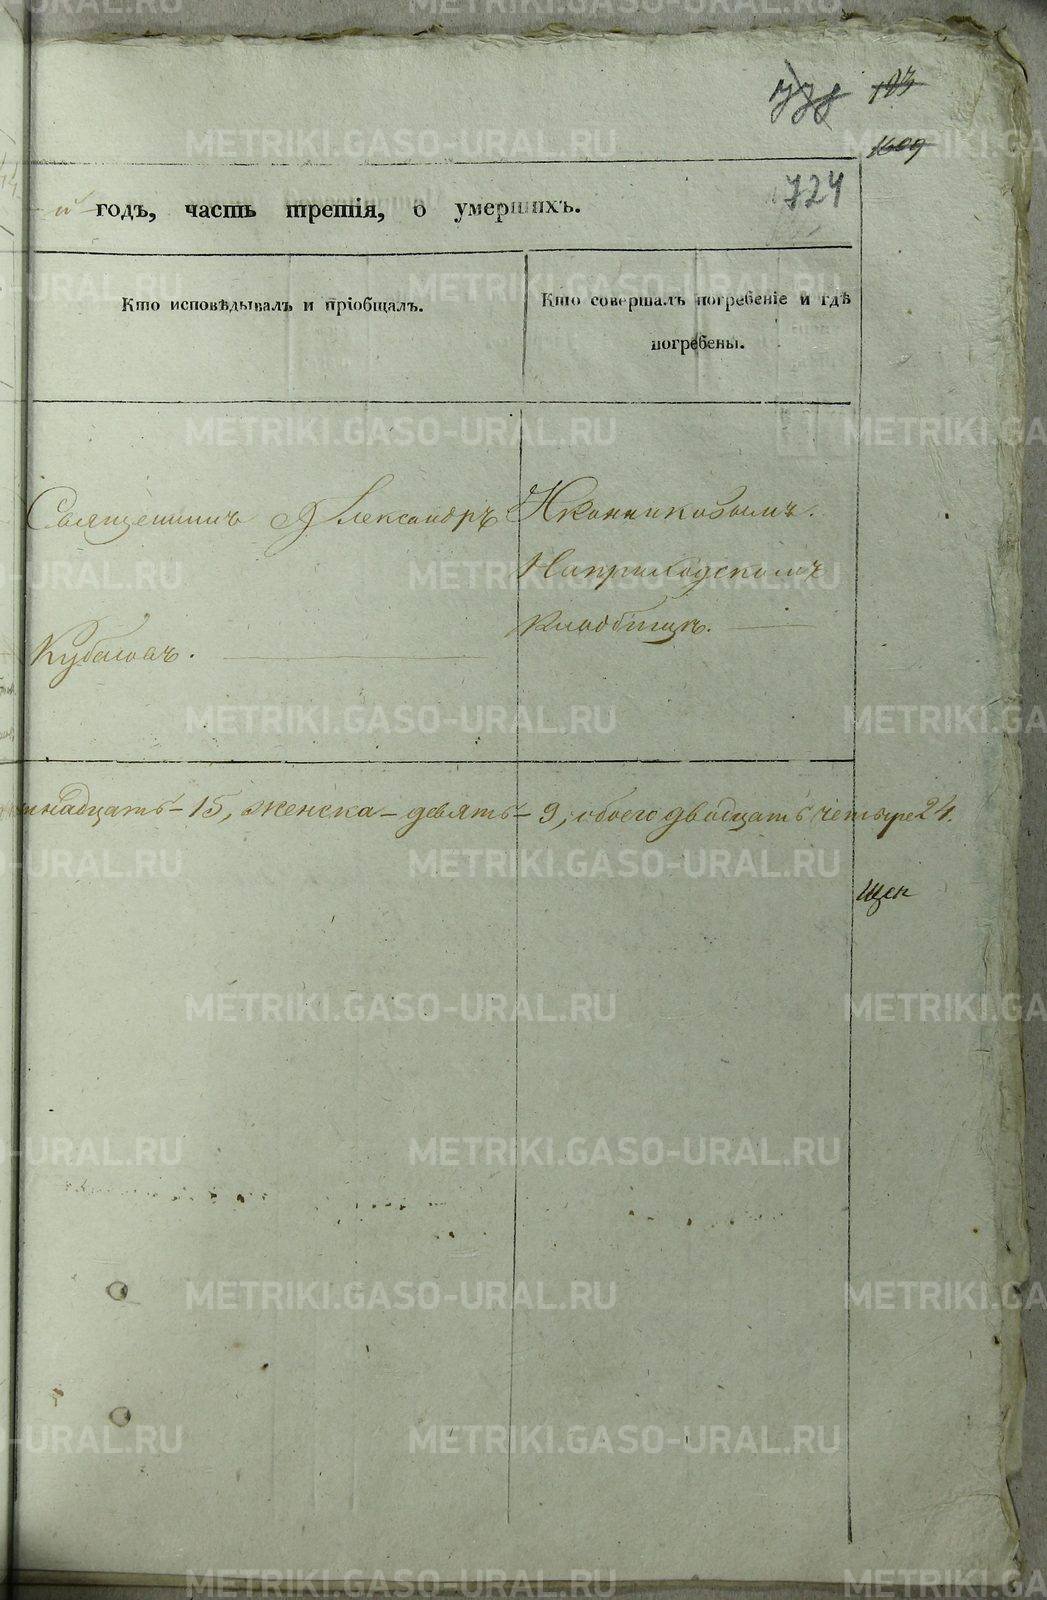 778 193
1609
724
й годъ, часть третія, о умершихъ.
Кто исповѣдывалъ и пріобщалъ.
Кто совершалъ погребеніе и гдѣ
погребены.
Священникъ Александръ
Иконниковымъ.
На приходскомъ
кладбищѣ.
надцать – 15, женска – девять – 9, обоего двадцать четыре 24.
METRIKI.GASO-URAL.RU